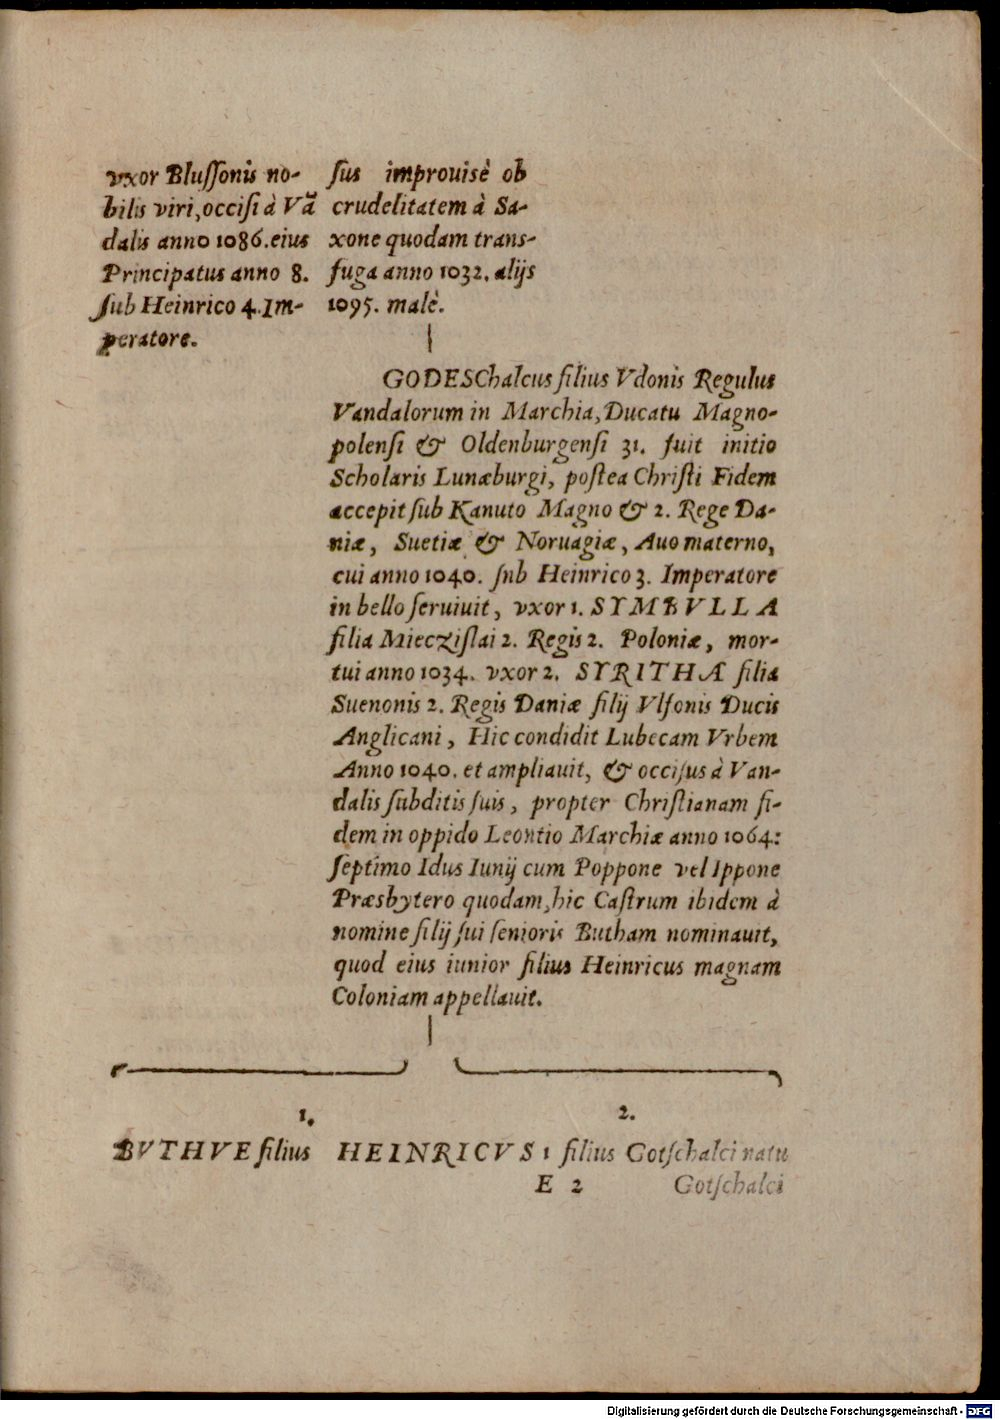 vxor Bluſſonis no-
bilis viri, occiſi à Vā
dalis anno 1086. eius
Principatus anno 8.
ſub Heinrico 4. Im-
peratore.
ſus improuisè ob
crudelitatem à Sa-
xone quodam trans-
fuga anno 1032. alijs
1095. malè.
GODESChalcus filius Vdonis Regulus
Vandalorum in Marchia, Ducatu Magno-
polenſi & Oldenburgenſi 31. fuit initio
Scholaris Lunæburgi, poſtea Chriſti Fidem
accepit ſub Kanuto Magno & 2. Rege Da-
niæ, Suetiæ & Noruagiæ, Auo materno,
cui anno 1040. ſnb Heinrico 3. Imperatore
in bello ſeruiuit, vxor 1. SYMBVLLA
filia Mieczislai 2. Regis 2. Poloniæ, mor-
tui anno 1034. vxor 2. SYRITHÆ filia
Suenonis 2. Regis Daniæ filij Vlſonis Ducis
Anglicani, Hic condidit Lubecam Vrbem
Anno 1040. et ampliauit, & occiſus à Van-
dalis ſubditis ſuis, propter Chriſtianam fi-
dem in oppido Leontio Marchiæ anno 1064:
ſeptimo Idus Iunij cum Poppone vel Ippone
Præsbytero quodam, hic Caſtrum ibidem à
nomine filij ſui ſenioris Butham nominauit,
quod eius iunior filius Heinricus magnam
Coloniam appellauit.
1. 2.
BVTHVE filius HEINRICVS 1 filius Gotſchalci natu
E 2 Gotſchalci
Digitalisierung gefördert durch die Deutsche Forschungsgemeinschaft - DFG